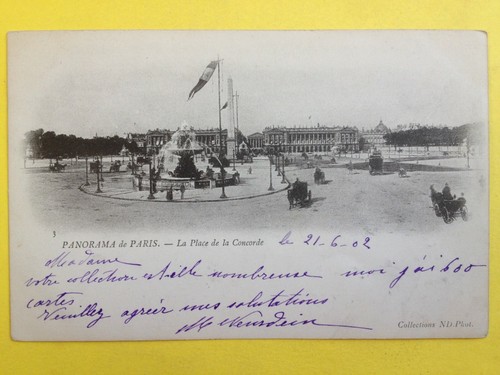 3
PANORAMA de PARIS. — La Place de la Concorde
le 21-6-02
Madame
votre collection est-elle nombreuse moi j'ai 600
cartes.
Veuillez agréer mes salutations
Collections ND Phot.